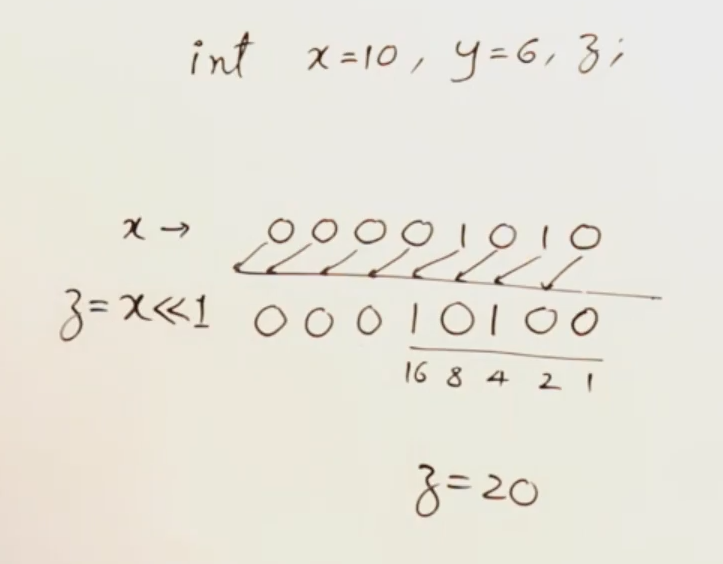 int x=10, y=6, z;
x → 0 0 0 0 1 0 1 0
z=x<<1 0 0 0 1 0 1 0 0
16 8 4 2 1
z=20